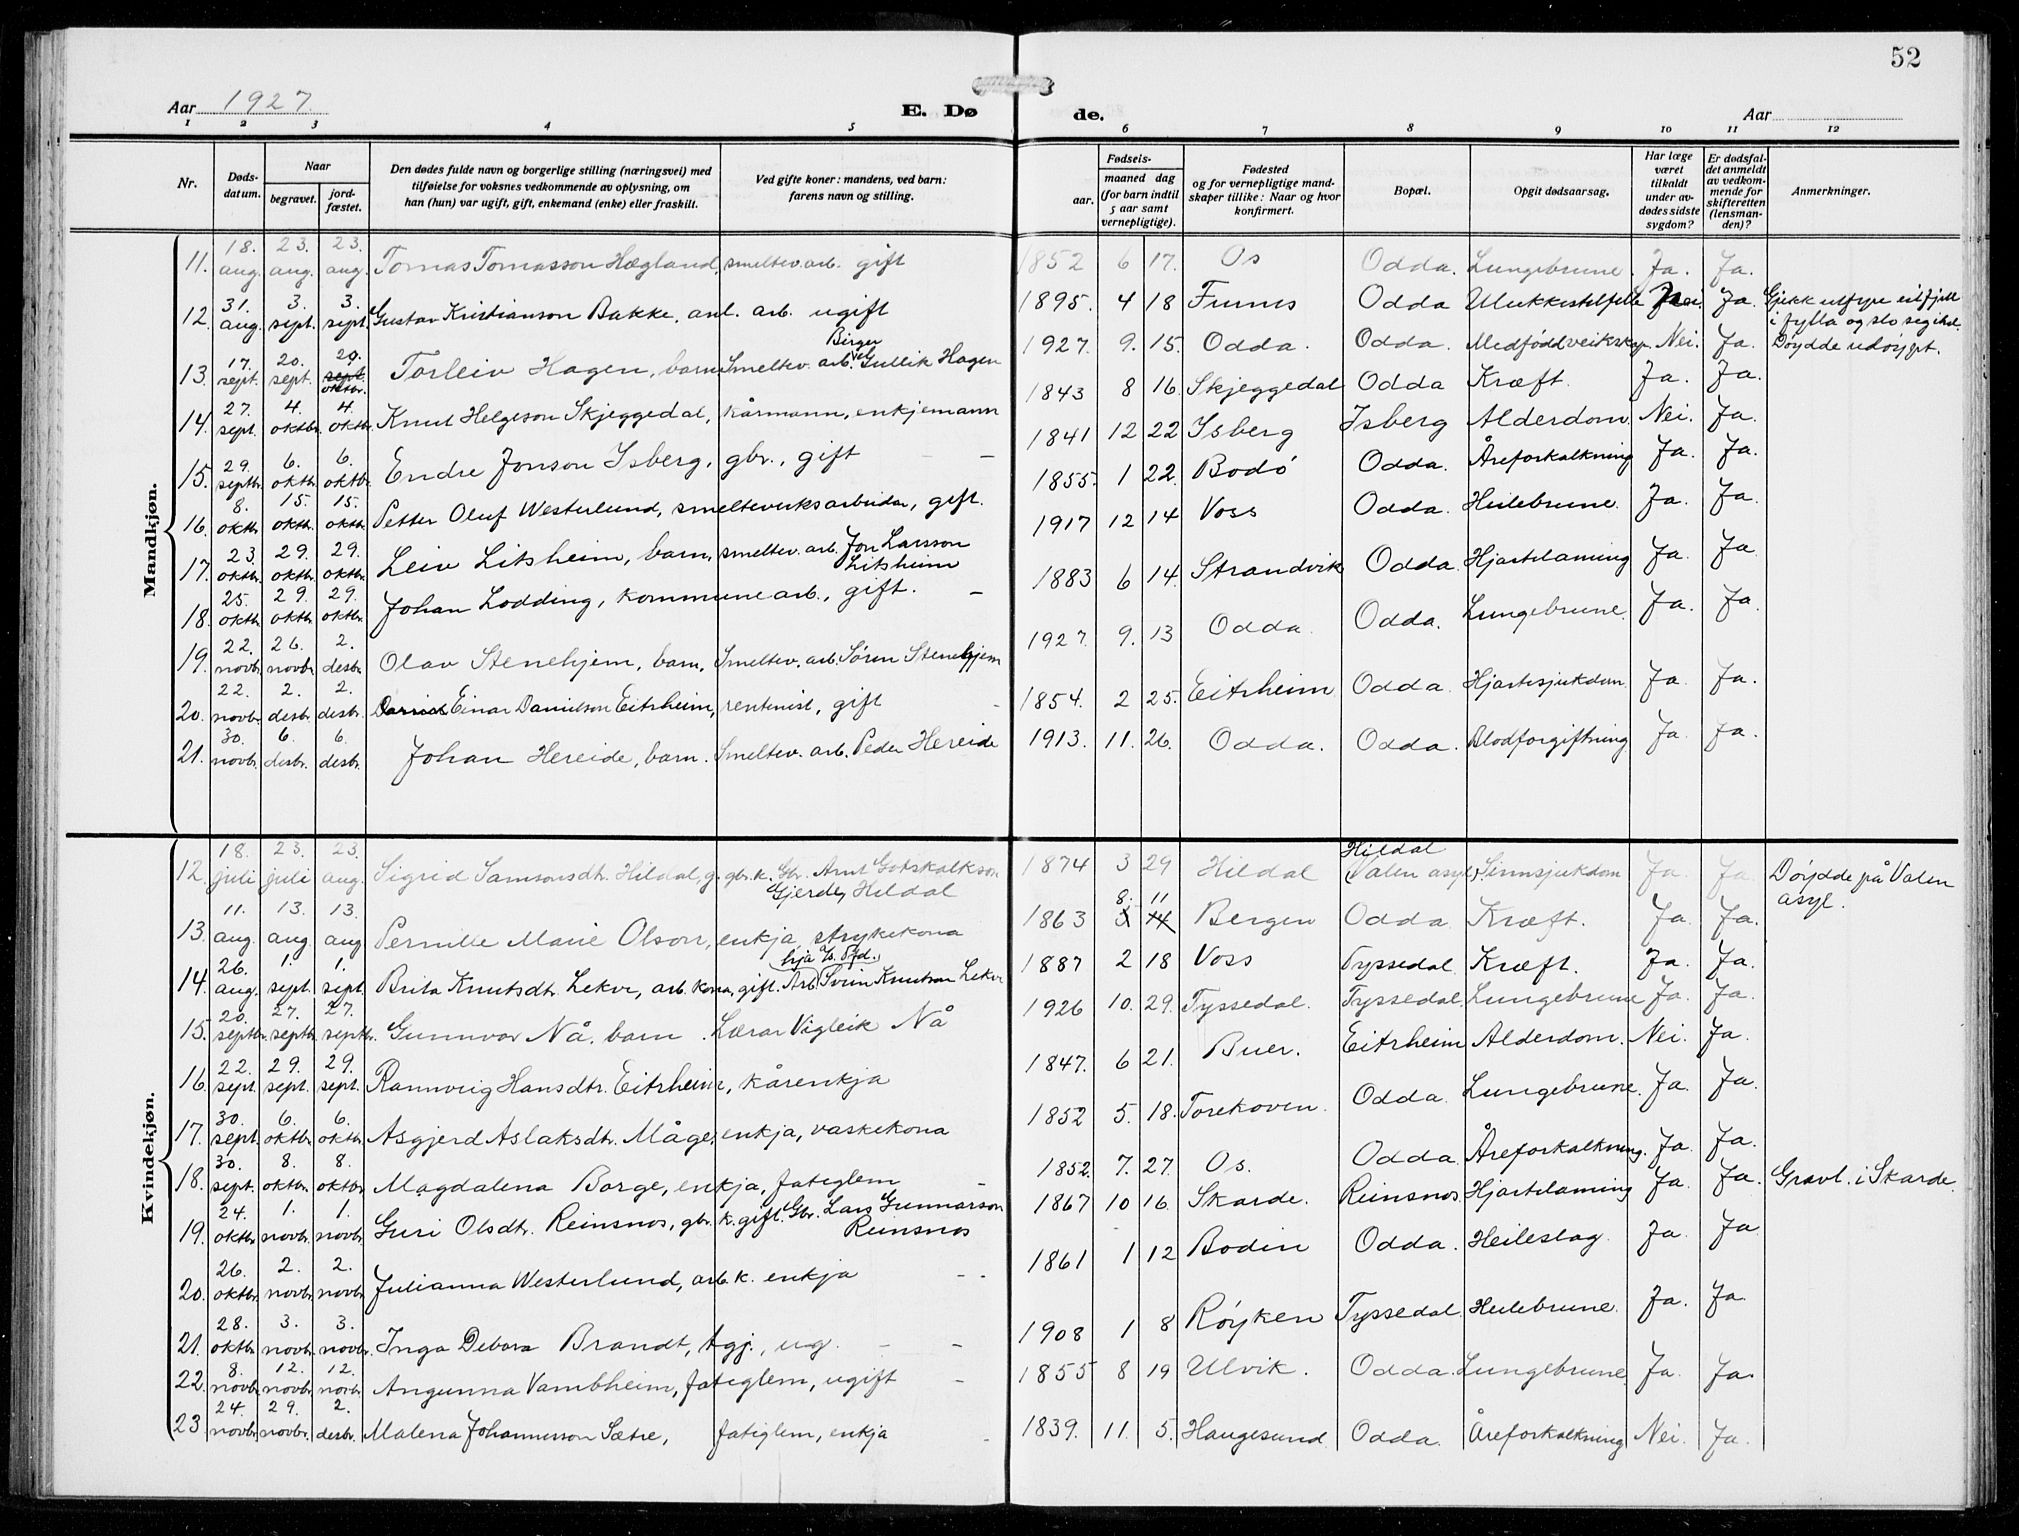 52
Aar 1927.
E. Døde.
Aar
1 2 3 4 5 6 7 8 9 10 11 12
Nr.
Døds-datum.
Naar
begravet.
jord-fæstet.
Den dødes fulde navn og borgerlige stilling (næringsvei) med
tilføielse for voksnes vedkommende av oplysning, om
han (hun) var ugift, gift, enkemand (enke) eller fraskilt.
Ved gifte koner: mandens, ved barn:
farens navn og stilling.
Fødsels-
aar.
maaned dag
(for barn indtil
5 aar samt
vernepligtige).
Fødested
og for vernepligtige mand-
skaper tillike: Naar og hvor
konfirmert.
Bopæl.
Opgit dødsaarsag.
Har læge
været
tilkaldt
under av-
dødes sidste
sygdom?
Er dødsfal-
det anmeldt
av vedkom-
mende for
skifteretten
(lensman-
den)?
Anmerkninger.
Mandkjøn.
11. 18. aug. 23. aug. 23. aug. Tomas Tomasson Hægland, smeltev. arb. gift 1852 6 17. Os Odda. Lungebrune. Ja. Ja.
12. 31. aug. 3. sept. 3. sept. Gustav Kristianson Bakke, anl. arb. ugift 1895. 4 18 Odda Ulukkestilfelle Nei. Ja. Gjekk utfyre eit fjell
i fylla og slo seg ihel.
13. 17. sept. 20. sept. 20. sept. oktbr. Torleiv Hagen, barn Smeltev. arb. Birger Gullik Hagen 1927. 9. 15. Odda. Odda. Medfødd veikskap Nei. Ja. Døydde udøypt.
14. 27. sept. 4. oktbr. 4. oktbr. Knut Helgeson Skjeggedal, kårmann, enkjemann 1843 8 16. Skjeggedal Odda Kræft. Ja. Ja.
15. 29. septbr. 6. oktbr. 6. oktbr. Endre Jonson Isberg, gbr., gift 1841 12 22 Isberg Isberg Alderdom. Nei. Ja.
16. 8. oktbr. 15. oktbr. 15. oktbr. Petter Oluf Westerlund, smelteverksarbeidar, gift. 1855. 1 22. Bodø Odda. Åreforkalkning Ja. Ja.
17. 23. oktbr. 29. oktbr. 29. oktbr. Leiv Litsheim, barn, smeltev. arb. Jon Larsson
Litsheim 1917 12 14 Voss Odda. Heilebrune. Ja. Ja.
18. 25. oktbr. 29. oktbr. 29. oktbr. Johan Lodding, kommunearb., gift. 1883 6 14. Strandvik Odda. Hjartelaming Ja. Ja
19. 22. novbr. 26. novbr. 2. desbr. Olav Stenehjem, barn, Smeltev. arb. Søren Stenehjem 1927. 9. 13 Odda. Odda. Lungebrune. Ja. Ja.
20. 22. novbr. 2. desbr. 2. desbr. Einar Danielson Eitrheim, rentenist, gift 1854. 2 25. Eitrheim Odda. Hjartesjukdom. Ja. Ja.
21. 30. novbr. 6. desbr. 6. desbr. Johan Hereide, barn. Smeltev. arb. Peder Hereide 1913. 11. 26. Odda. Odda. Blodforgiftning Ja. Ja.
Kvindekjøn.
12. 18. juli 23. juli 23. aug. Sigrid Samsonsdtr. Hildal, g. gbr. k. Gbr. Arnt Gotskalkson
Gjerde, Hildal 1874 3 29 Hildal Hildal
Valen asyl. Sinnsjukdom Ja. Ja. Døydde på Valen
asyl.
13. 11. aug. 13. aug 13. aug Pernille Marie Olson, enkja, strykekona 1863 8. 11 Bergen Odda. Kræft. Ja. Ja.
14. 26. aug. 1. sept. 1. sept. Brita Knutsdtr. Lekve, arb. kona, gift. Arb. Svein Knutson Lekve 1887 2 18 Voss Tyssedal. Kræft. Ja. Ja.
15. 20. septbr. 27. septbr. 27. septbr. Gunnvor Nå, barn. Lærar Vigleik Nå 1926 10. 29. Tyssedal. Tyssedal. Lungebrune Ja. Ja.
16. 22. sept. 29. sept. 29. sept. Rannveig Hansdtr. Eitrheim, kårenkja 1847. 6 21. Buer. Eitrheim Alderdom. Nei. Ja.
17. 30. sept. 6. oktbr. 6. oktbr. Asgjerd Aslaksdtr. Måge, enkja, vaskekona 1852 5. 18. Torekoven. Odda. Lungebrune. Ja. Ja.
18. 30. sept. 8. oktbr. 8. oktbr. Magdalena Borge, enkja, fatiglem 1852. 7. 27. Os. Odda. Åreforkalkning. Ja. Ja.
19. 24. oktbr. 1. novbr. 1. novbr. Guri Olsdtr. Reinsnos, gbr. k. gift. Gbr. Lars Gunnarson
Reinsnos 1867 10 16. Skarde. Reinsnos. Hjartelaming Ja. Ja. Gravl. i Skarde.
20. 26. oktbr. 2. novbr. 2. novbr. Julianna Westerlund, arb. k. enkja 1861 1 12 Bodin Odda. Heileslag. Ja. Ja
21. 28. oktbr. 3. novbr. 3. novbr. Inga Debora Brandt, tgj., ug. 1908 1 8 Røyken Tyssedal. Heilebrune. Ja. Ja.
22. 8. novbr. 12. novbr. 12. novbr. Angunna Vambheim, fatiglem, ugift 1855 8 19 Ulvik. Odda. Lungebrune Ja. Ja.
23. 24. novbr. 29. novbr. 2. desbr. Malena Johannesson Sætre, fatiglem, enkja 1839. 11. 5. Haugesund. Odda. Åreforkalkning Nei. Ja.